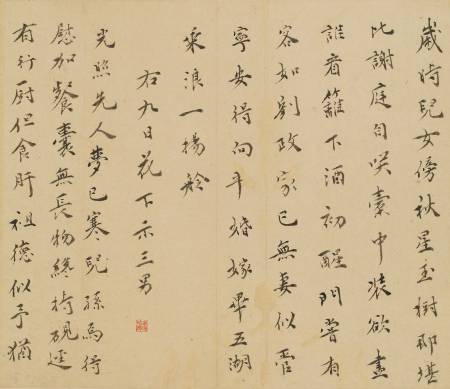 歲時兒女傍秋星玉樹那堪
比謝庭自咲橐中裝欲盡
誰看籬下酒初醒門嘗有
客如劉政家已無妻似管
寧安得向平婚嫁畢五湖
乘浪一揚舲
右九日花下示三男
光照先人夢已寒兒孫焉得
慰加餐囊無長物終持硯
有行厨但食肝祖德似予猶